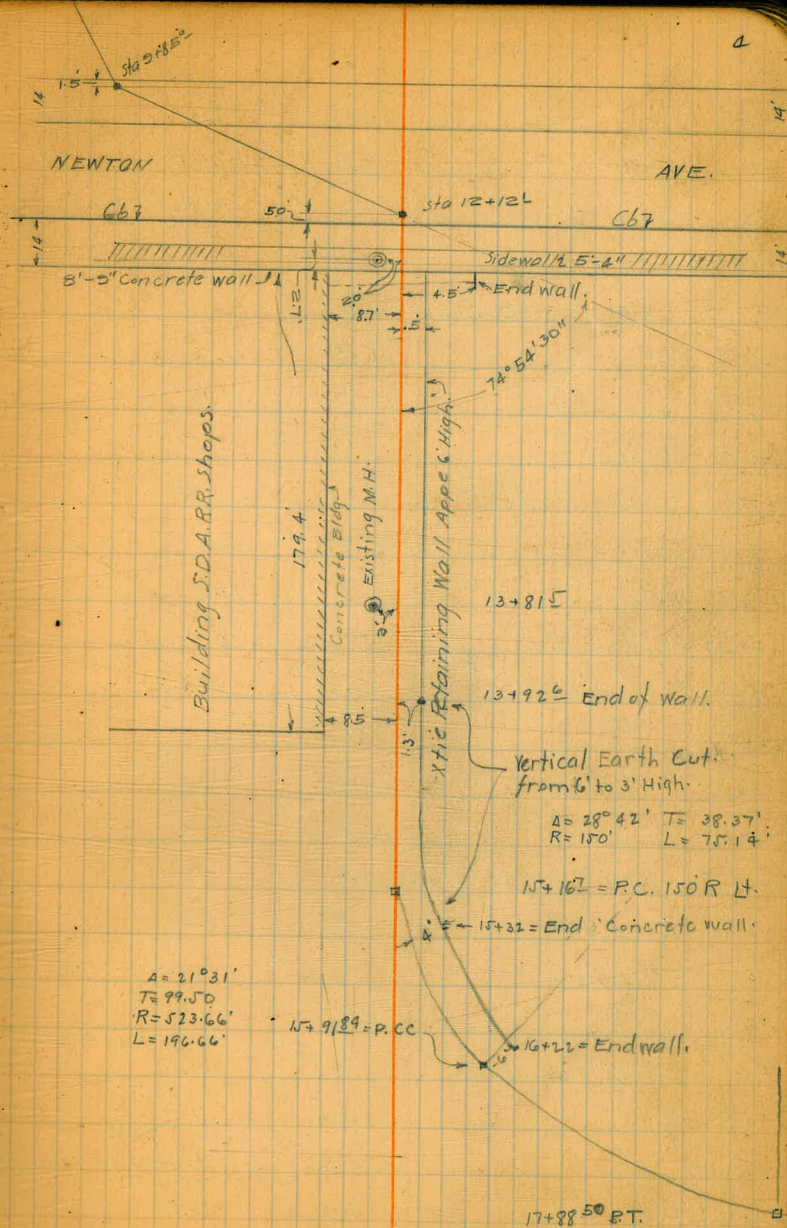 4
Sta 9+85⁰
1.5'
14
14'
NEWTON AVE.
Sta 12+12
Cb7 50 Cb7
14
14'
Sidewalk 5'-4"
8'-9" Concrete wall
4.5' End wall.
2.7'
20'
8.7'
.5
74° 54' 30"
Building S.D.A.RR. Shops.
179.4'
Concrete Bldg
Existing M.H.
3'
Xtic Retaining Wall Appx 6' High.
13+81⁵
13+92⁶ End of wall.
8.5
1.3'
Vertical Earth Cut.
from 6' to 3' High.
Δ= 28° 42' T= 38.37'
R= 150' L= 75.14'
15+16⁷ = P.C. 150'R Lt.
4'
15+32 = End Concrete wall.
Δ= 21° 31'
T= 99.50
R= 523.66'
L= 196.66'
15+91⁸⁴ = P.CC
6'
16+22 = End wall.
17+88⁵⁰ P.T.